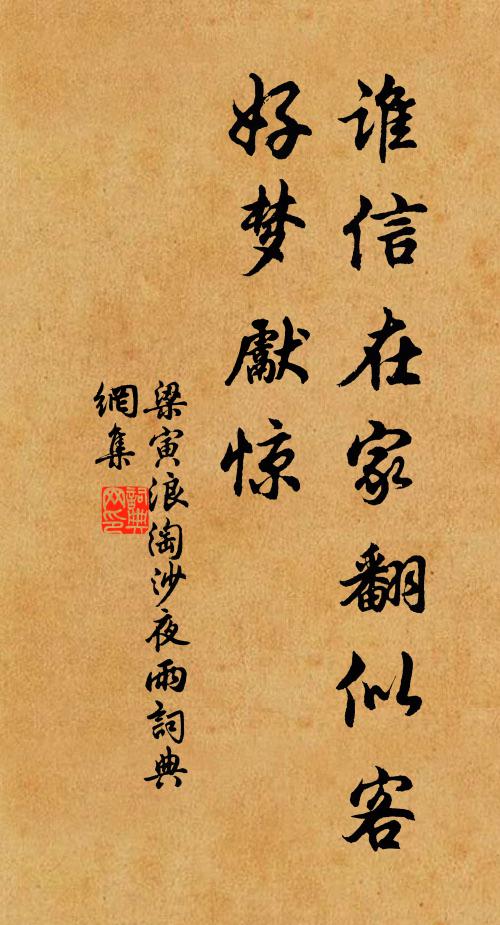 谁信在家翻似客
好梦献惊
梁寅浪淘沙夜雨詞典
網集
詞典
网印